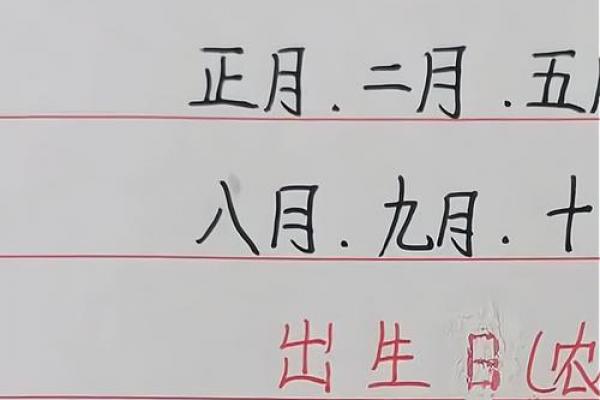 正月.二月.五月
八月.九月.十
出生日(农